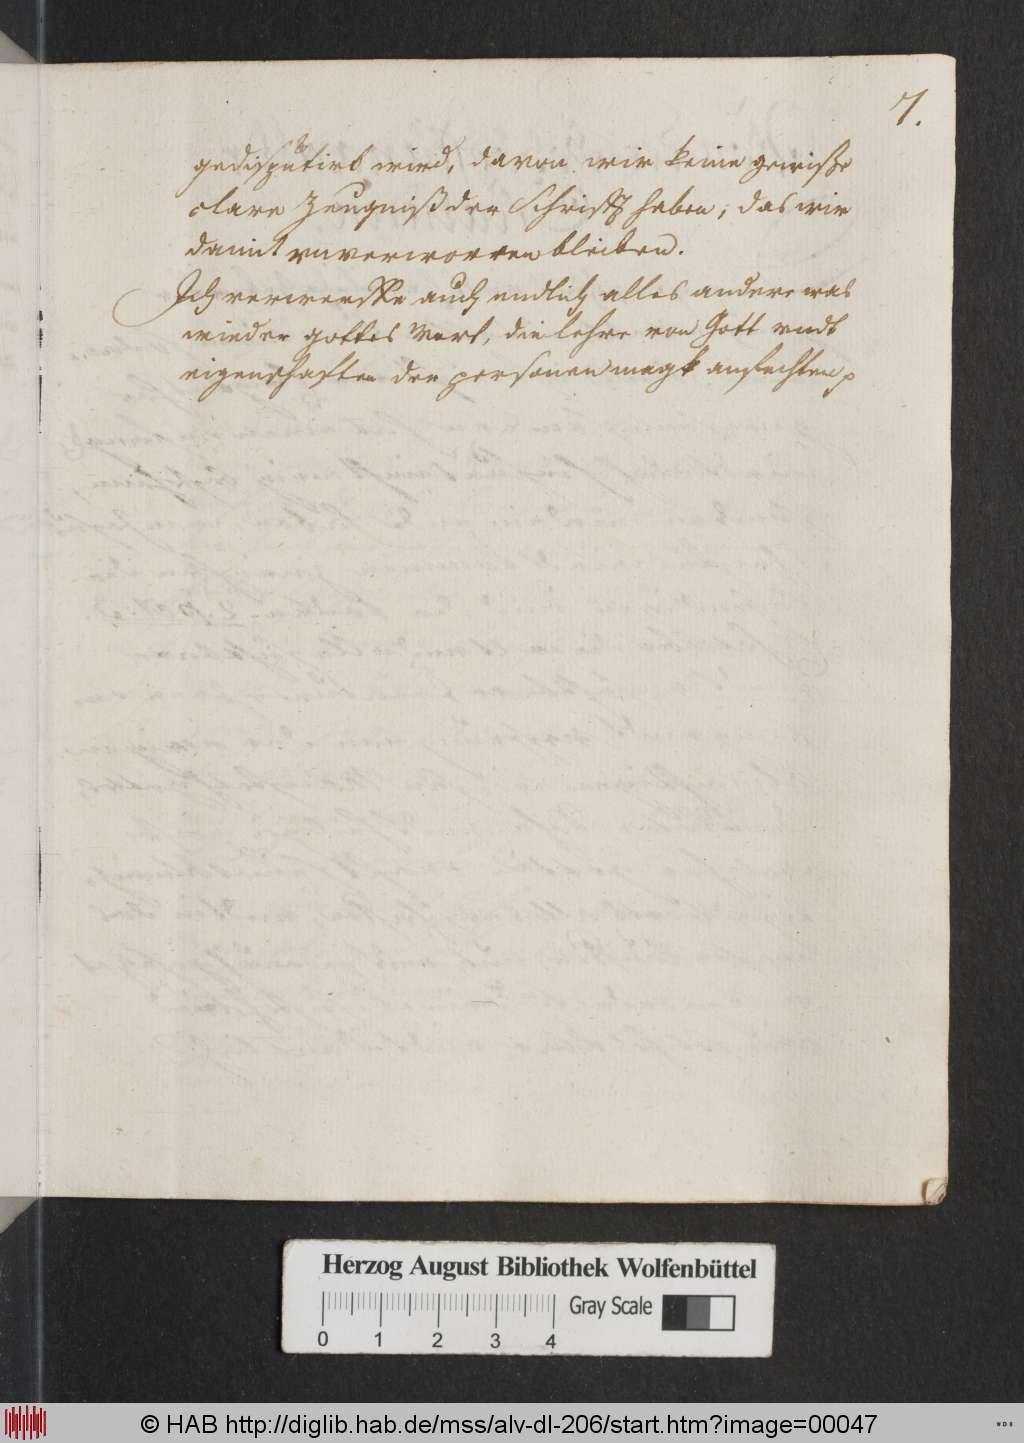 7.
gedisputirt wird, davon wir keine gewiße
clare Zeugniß der Schrifft haben, das wir
damit unverworren bleiben.
Ich verwerffe auch endlich alles andere was
wieder gottes Wort, die lehre von Gott undt
eigenschafften der personen magk anfechten
Herzog August Bibliothek Wolfenbüttel
Gray Scale
0 1 2 3 4
© HAB http://diglib.hab.de/mss/alv-dl-206/start.htm?image=00047